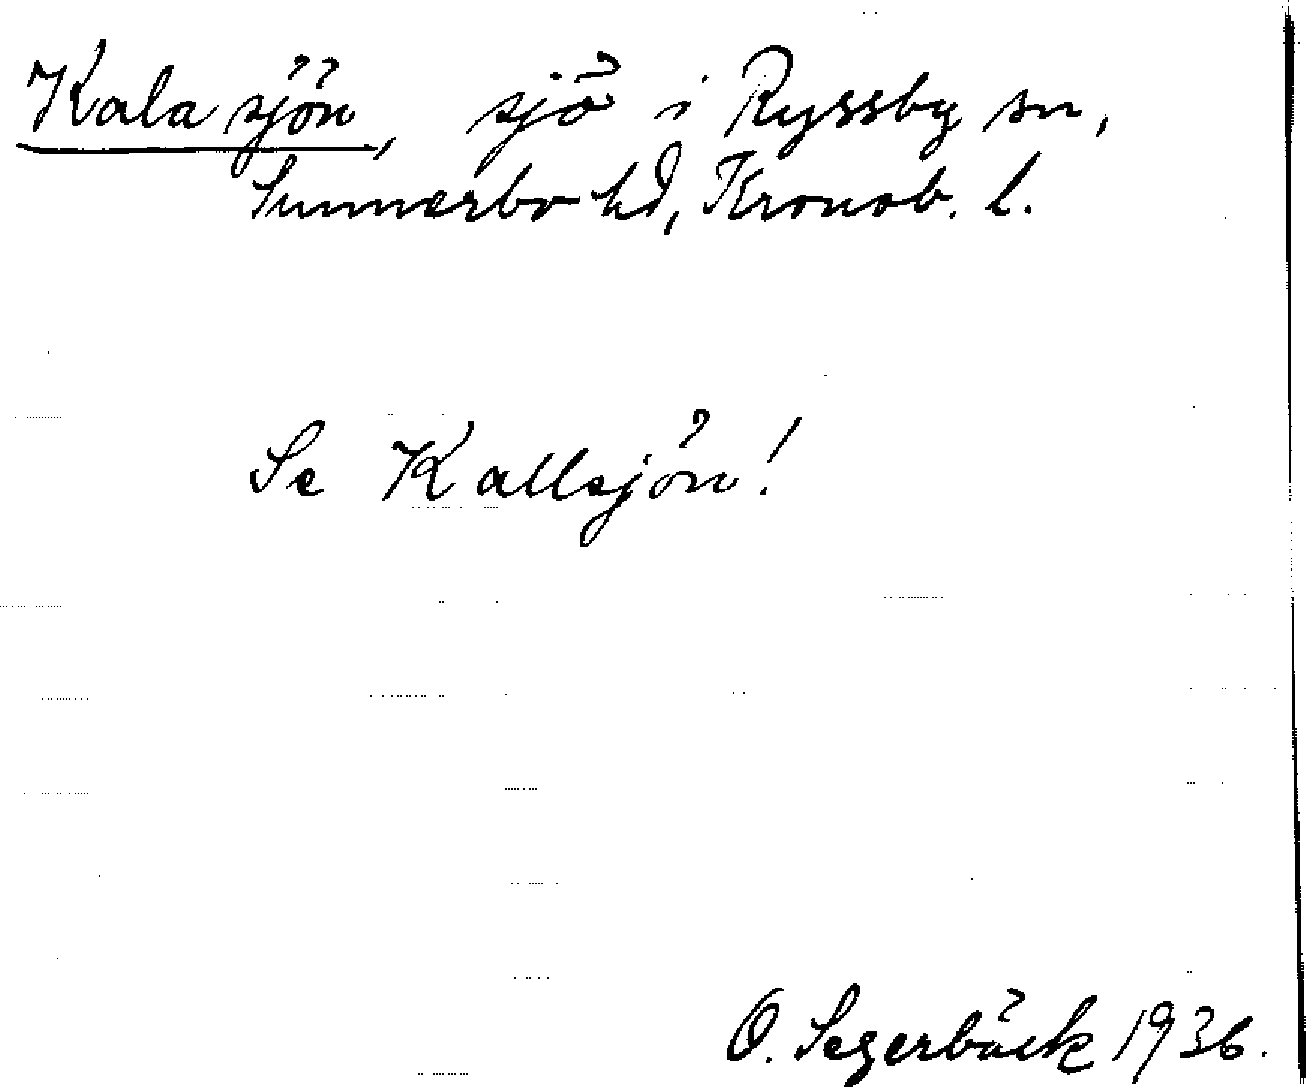 Kala sjön, sjö i Ryssby sn,
Sunnerbo hd, Kronob. l.
Se Kallsjön!
O. Segerbäck 1936.